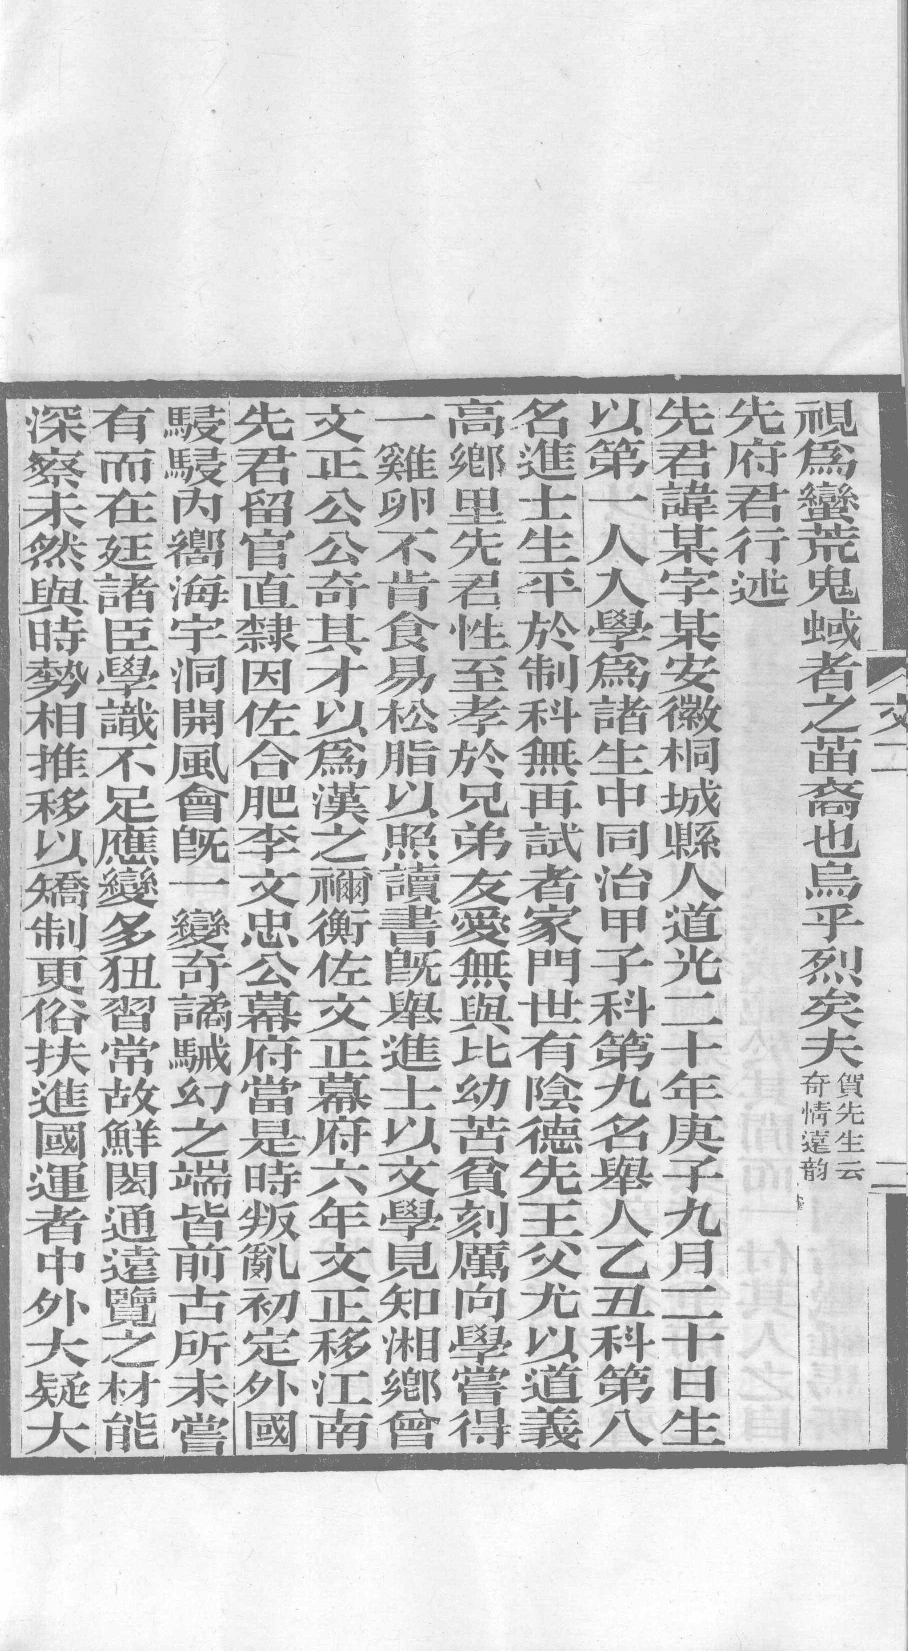 視爲蠻荒鬼蜮者之苗裔也烏乎烈矣夫賀先生云奇情遠韵
先府君行述
先君諱某字某安徽桐城縣人道光二十年庚子九月二十日生
以第一人入學爲諸生中同治甲子科第九名舉人乙丑科第八
名進士生平於制科無再試者家門世有陰德先王父尤以道義
高鄉里先君性至孝於兄弟友愛無與比幼苦貧刻厲向學嘗得
一雞卵不肯食易松脂以照讀書旣舉進士以文學見知湘鄉曾
文正公公奇其才以爲漢之禰衡佐文正幕府六年文正移江南
先君留官直隸因佐合肥李文忠公幕府當是時叛亂初定外國
駸駸內嚮海宇洞開風會旣一變奇譎駴幻之端皆前古所未嘗
有而在廷諸臣學識不足應變多狃習常故鮮閎通遠覽之材能
深察未然與時勢相推移以矯制更俗扶進國運者中外大疑大